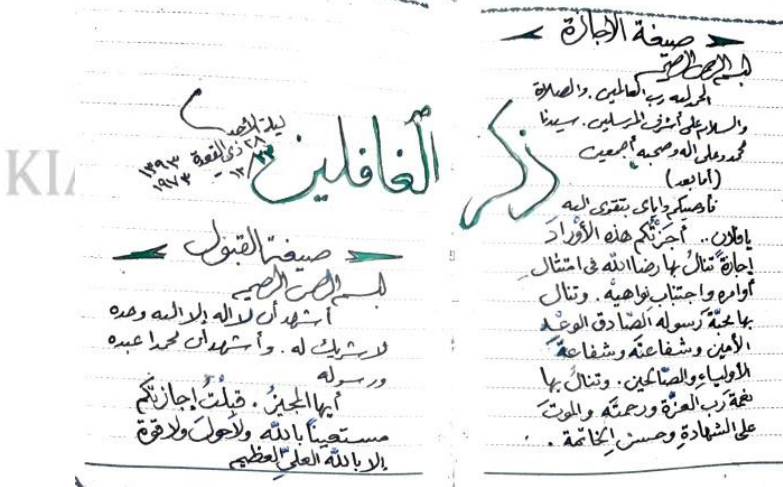 صيغة الأجازة
بسم الله الرحمن الرحيم
الحمد لله رب العالمين. والصلاة
والسلام على أشرف المرسلين. سيدنا
محمد وعلى آله وصحبه أجمعين
(أما بعد)
فأوصيكم وإياي بتقوى الله
يافلان.. أجَزْتُكم هذه الأوْرادَ
إجازةً تنالُ بها رضا اللّه فى امتثال
أوامره واجتناب نواهيه. وتنال
بها محبّة رسوله الصّادق الوعْد
الأمين وشفاعتَه وشفاعةَ
الأولياءِ والصّالحين. وتنالُ بها
نعمة ربّ العزّة ورحمتَه والموتَ
على الشهادةِ وحسن الخاتمة.
ذكر الغافلين
ليلة الأحد
٢٨ ذي القعدة ١٣٩٣
٢٣/١٢ ١٩٧٣
صيغة القبول
بسم الله الرحمن الرحيم
أشهد أن لا اله إلا الله وحده
لا شريك له. وأشهد أن محمدا عبده
ورسوله
أيها المجيزُ. قبِلْتُ إجازتكم
مستعيناً باللّه ولا حولَ ولا قوة
إلا باللّه العليّ العظيم
KIA